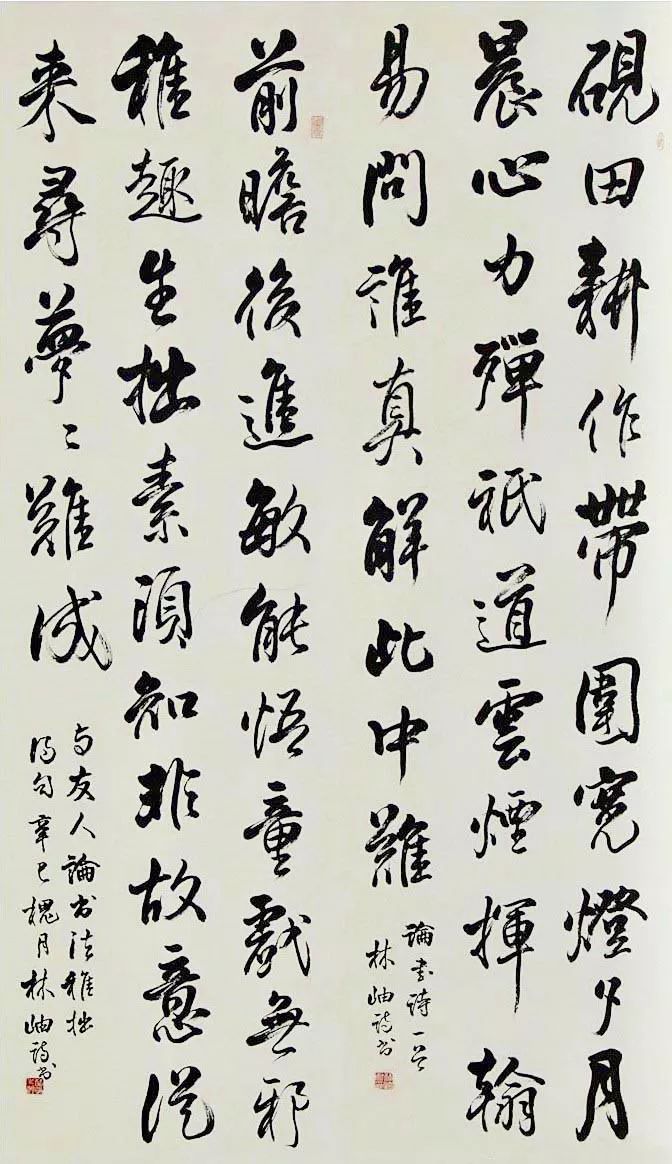 硯田耕作帶圍寬燈夕月
晨心力殫祇道雲煙揮翰
易問誰真解此中難
論書詩一首
林岫詩書
前瞻後進敏能悟童戲無邪
稚趣生拙素須知非故意從
来尋夢〻難成
与友人論書法稚拙
得句辛巳槐月林岫詩書